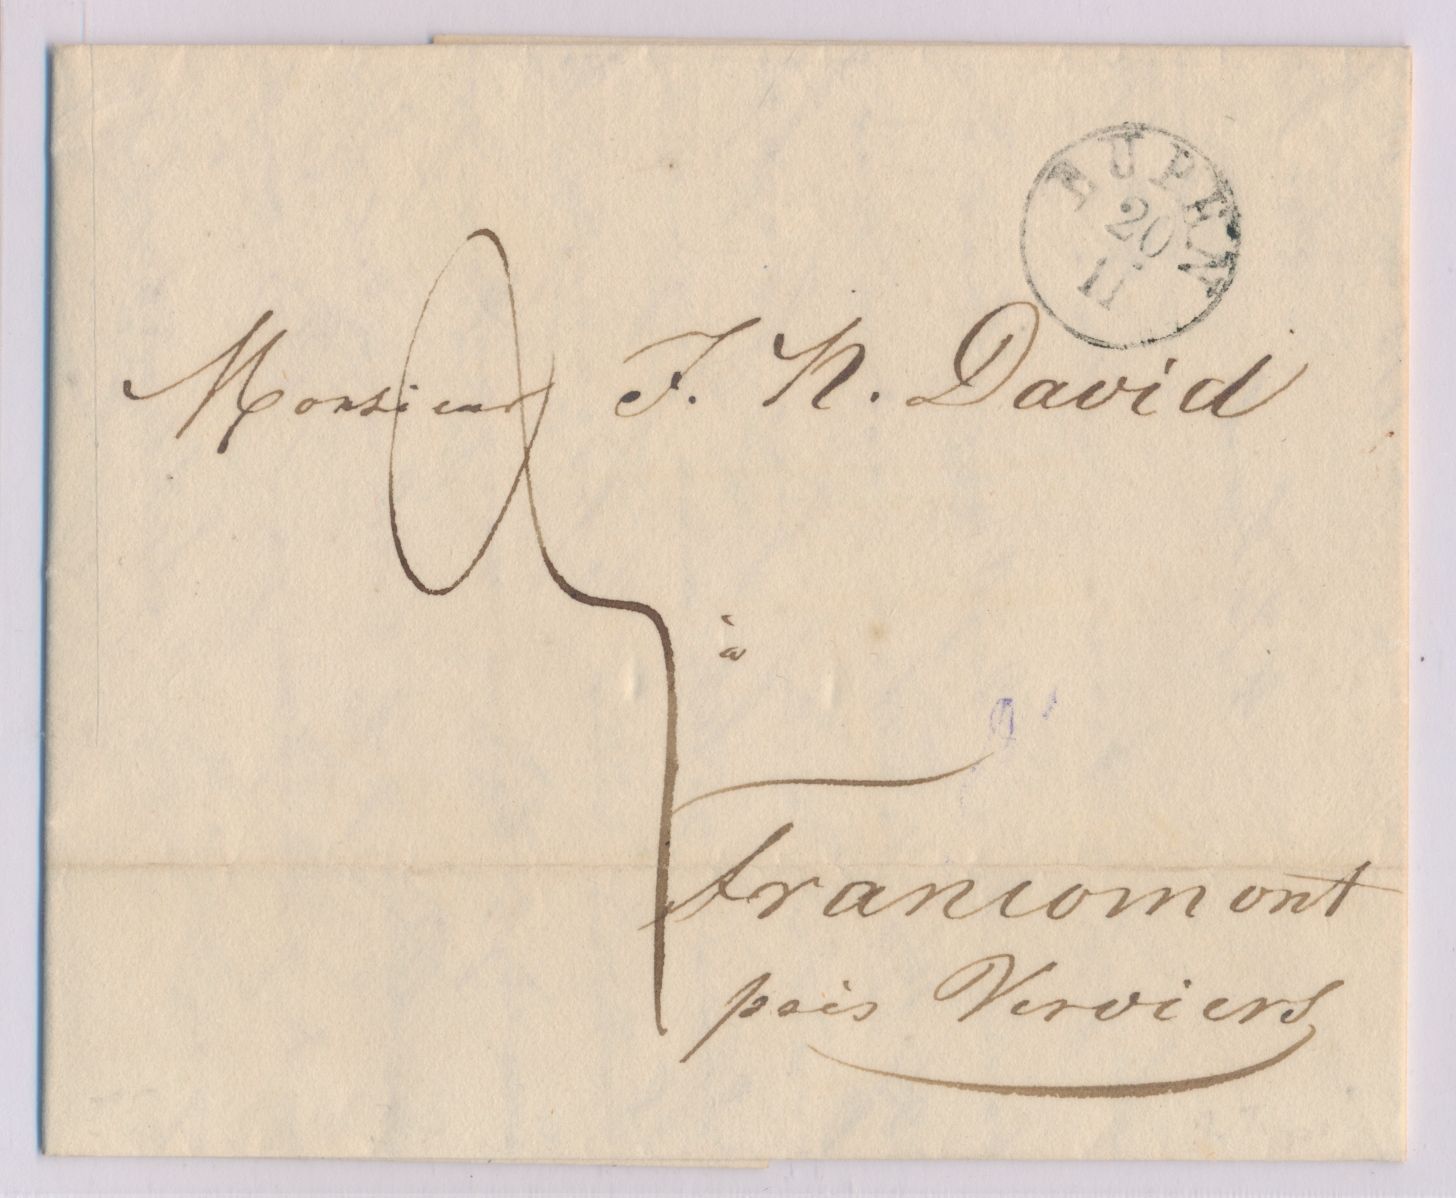 EUPEN
20
11
Monsieur J. N. David
à
Francomont
près Verviers